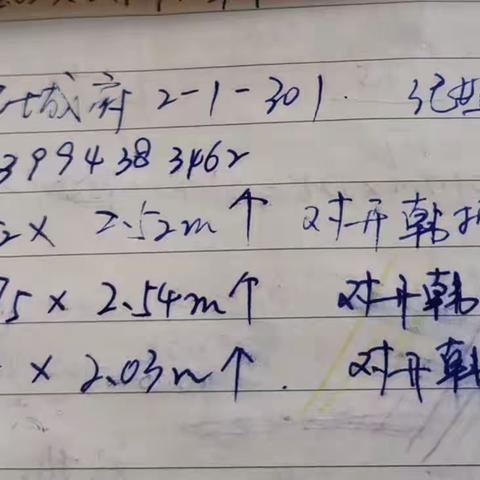 城府 2-1-301. 纪
3994383462
2× 2.52m↑ 对开韩折
75 × 2.54m↑ 对开韩
× 2.03m↑. 对开韩